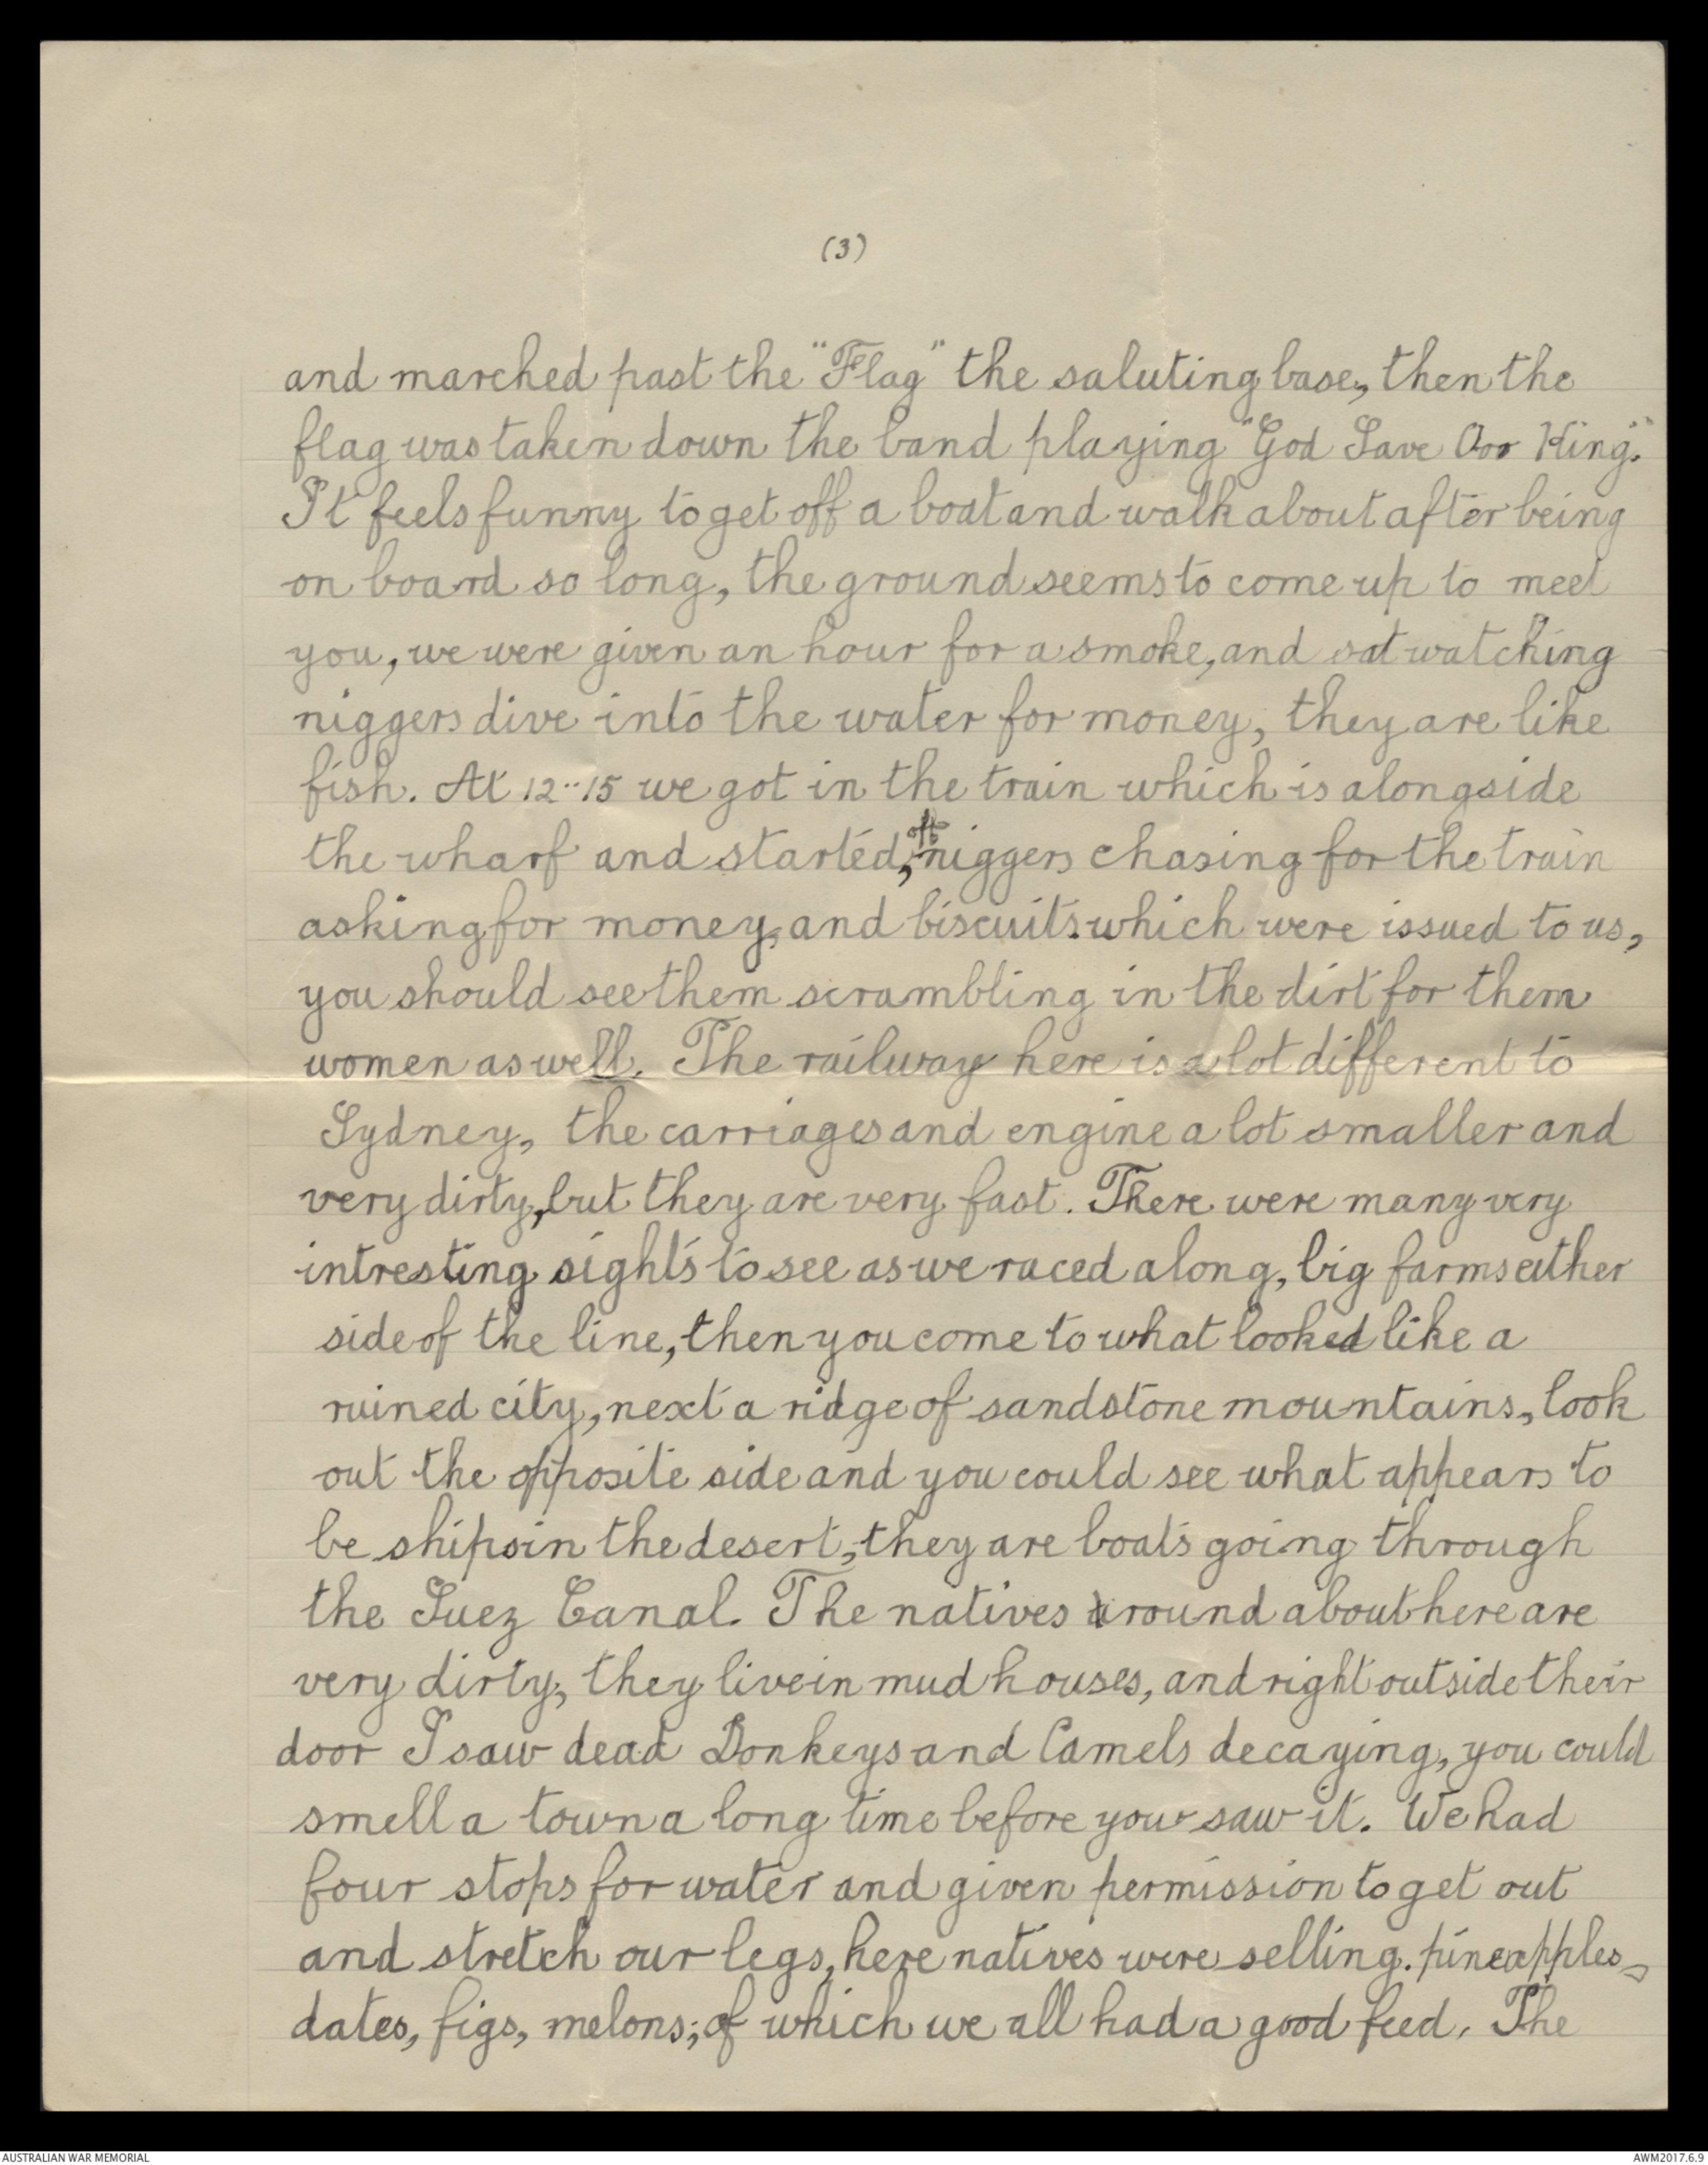 (3)
and marched past the "Flag" the saluting base, then the
flag was taken down the band playing "God Save Our King".
It feels funny to get off a boat and walk about after being
on board so long, the ground seems to come up to meet
you, we were given an hour for a smoke, and sat watching
niggers dive into the water for money, they are like
fish. At 12··15 we got in the train which is alongside
off
the wharf and started, niggers chasing for the train
asking for money, and biscuits which were issued to us,
you should see them scrambling in the dirt for them
women as well. The railway here is a lot different to
Sydney, the carriages and engine a lot smaller and
very dirty, but they are very fast. There were many very
intresting sights to see as we raced along, big farms either
side of the line, then you come to what looked like a
ruined city, next a ridge of sandstone mountains, look
out the opposite side and you could see what appears to
be ships in the desert, they are boats going through
the Suez Canal. The natives around about here are
very dirty, they live in mud houses, and right outside their
door I saw dead Donkeys and Camels decaying, you could
smell a town a long time before you saw it. We had
four stops for water and given permission to get out
and stretch our legs, here natives were selling. pineapples,
dates, figs, melons; of which we all had a good feed. The
AUSTRALIAN WAR MEMORIAL
AWM2017.6.9